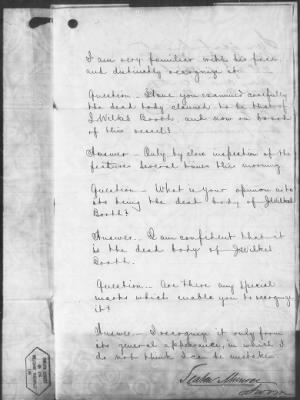 I am very familiar with his face
and distinctly recognize it.
Question - Have you examined carefully
the dead body claimed to be that of
J. Wilkes Booth and now on board
of this vessel?
Answer - Only by close inspection of the
features several times this morning.
Question - What is your opinion as to
its being the dead body of J Wilkes
Booth?
Answer - I am confident that it
is the dead body of J Wilkes
Booth.
Question - Are there any special
marks which enable you to recognize
it?
Answer - I recognize it only from
its general appearance, in which I
do not think I can be mistaken.
Seaton Munroe